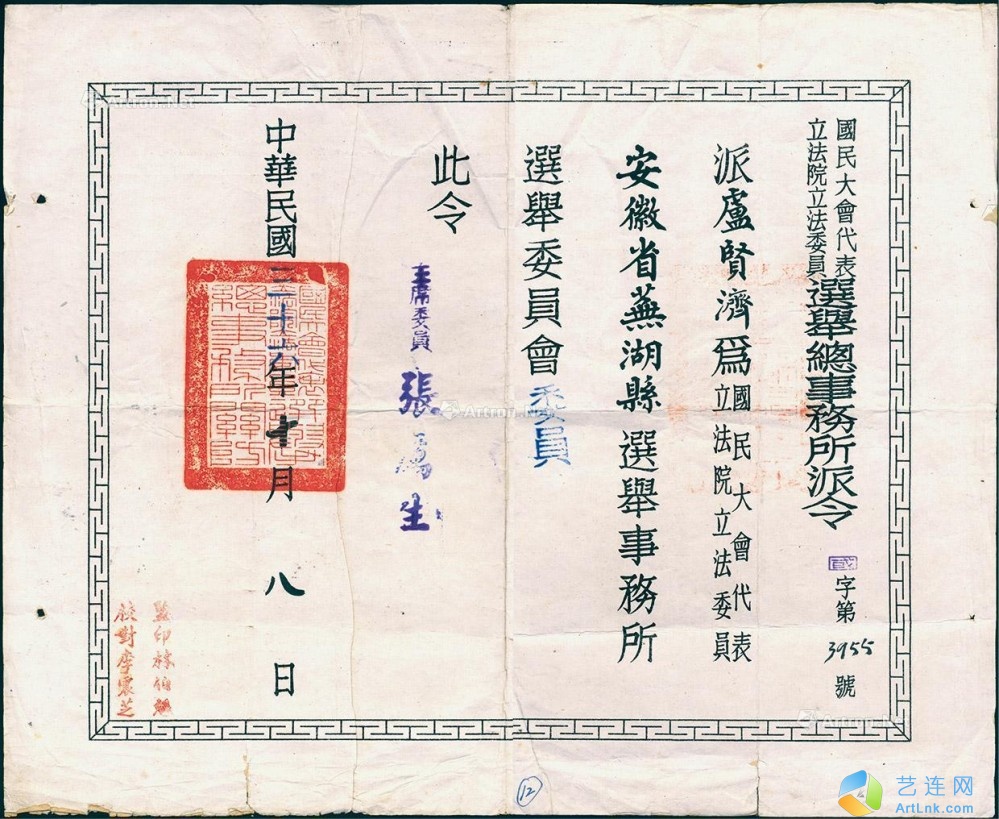 國民大會代表
立法院立法委員
選舉總事務所派令
國字第3955號
派盧賢濟為
國民大會代表
立法院立法委員
安徽省蕪湖縣選舉事務所
選舉委員會委員
此令
主席委員 張厲生
中華民國三十六年十月八日
監印林伯
校對李震芝
12
艺连网
ArtLnk.com
Artron.Net
Artron.Net
Artron.Net